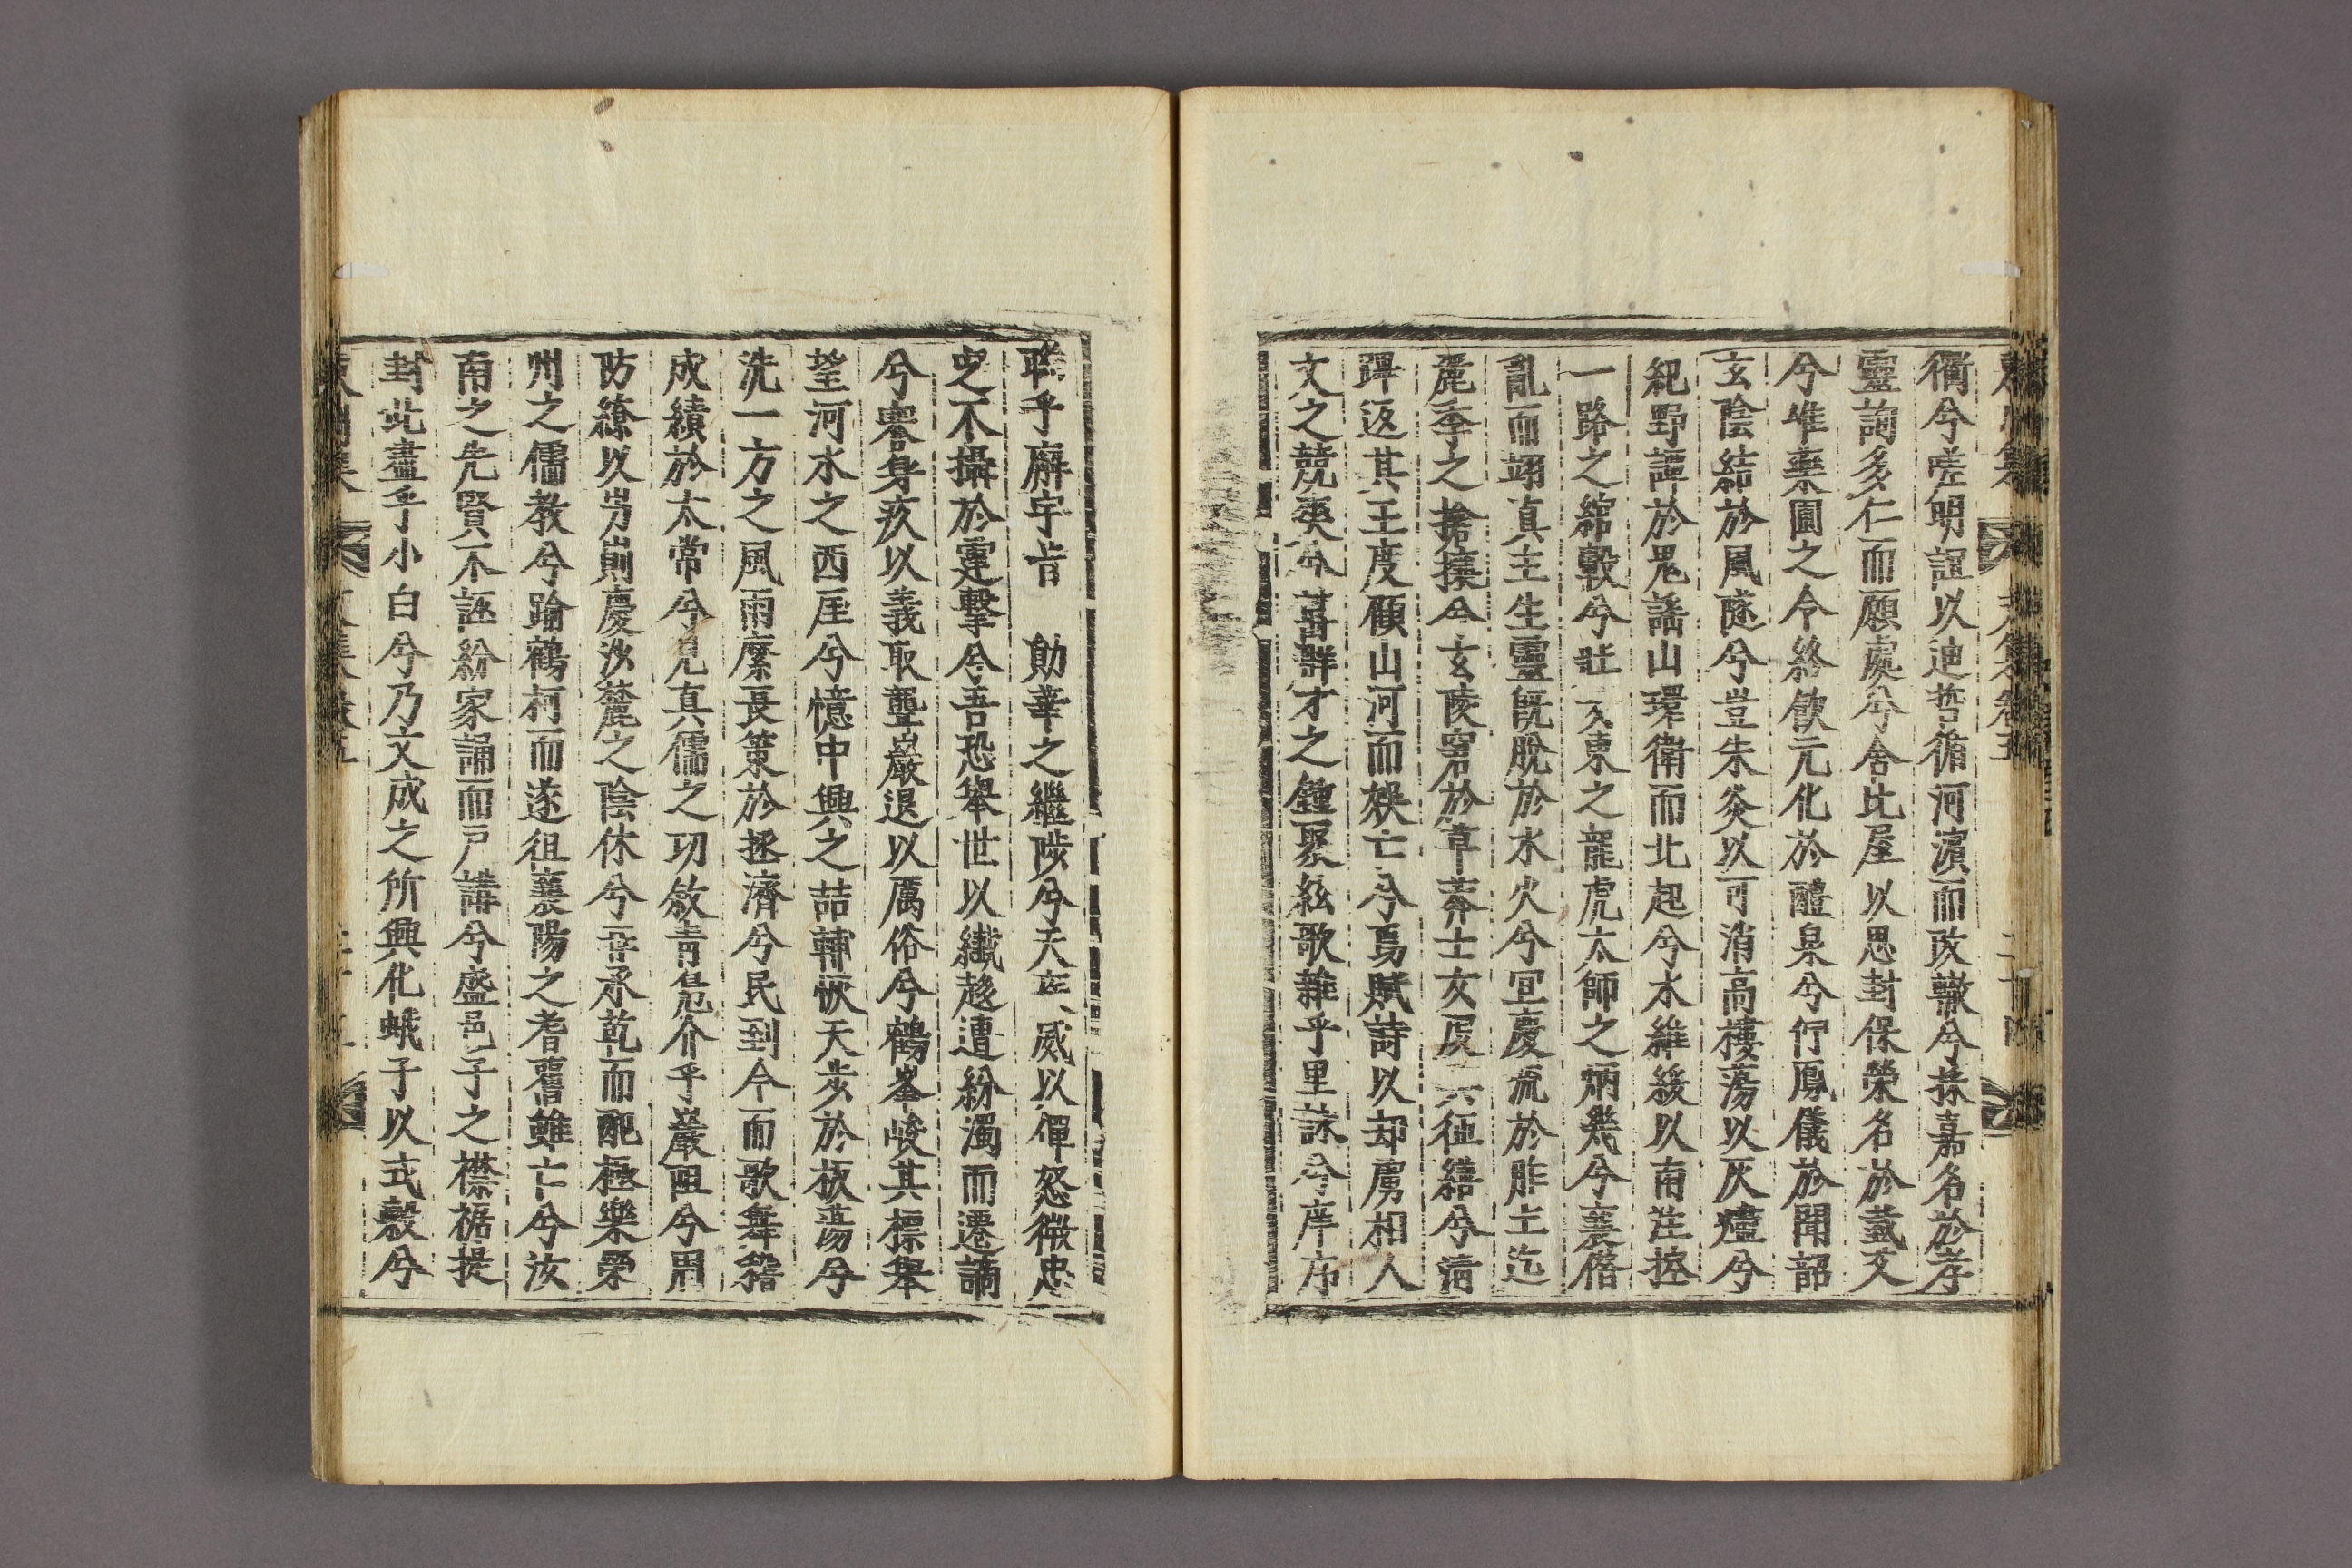 衢兮嗟明誼以迪哲循河濱而改轍兮揉嘉名於孝
靈詢多仁而願處兮舍比屋以思封保榮名於蓋文
兮唯藥園之令終歆元化於醴泉兮佇鳳儀於聞韶
玄陰結於風隧兮豈朱炎以可消高樓蕩以灰燼兮
紀野譚於鬼謠山環衛而北起兮水維綏以南注控
一路之綰轂兮壯 東之龍虎太師之炳幾兮襄僭
亂而翊真主生靈旣脫於水火兮宜慶流於胙土迄
麗季之搶攘兮玄陵窘於草莽士女 征繕兮淸
蹕返其王度顧山河而娛亡兮曷賦詩以却虜相人
文之競爽兮 群才之鍾聚絃歌雜乎里詠兮庠序
聮乎廨宇肯 勛華之繼陟兮天 威以僤怒微忠
之不攝於霆擊兮吾恐舉世以纖趍遭紛濁而遷謫
兮 身疚以義取聾巖退以厲俗兮鶴峯峻其標舉
望河水之西厓兮憶中興之喆輔恢天步於板蕩兮
洗一方之風雨縻長策於拯濟兮民到今而歌舞
成績於太常兮見真儒之功 靑 介乎巖阻兮
防繚以岃崱慶沙麓之陰休兮 承乾而配極樂榮
州之儒教兮踰鶴柯而遂徂襄陽之耆舊雖亡兮汝
南之先賢不誣紛家誦而戶講兮盛邑子之襟裾提
封此盡乎小白兮乃文成之所興化蛾子以式穀兮